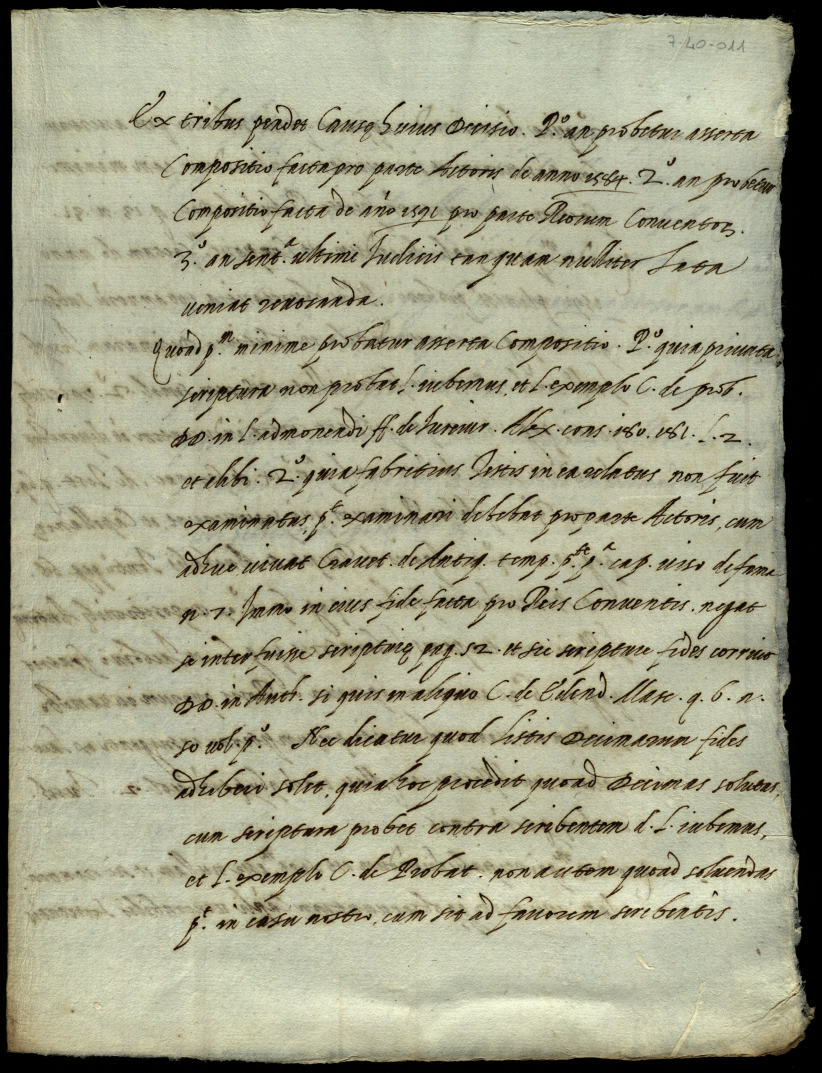 7-40-011
Ex tribus pendet Causę huius Decisio. P.º an probetur asserta
Compositio facta pro parte Actoris de anno 1584. 2.º an probetur
Compositio facta de año 1591 pro parte Reorum Conventor.
3.º an sent.ª ultimi Iudicis tanquam nulliter lata
veniat revocanda.
Quoad p.m minime probatur asserta Compositio. P.º quia privata
scriptura non probat l. iubemus, et l. exemplo C. de prob.
DD. in l. admonendi ff. de Iureiur. Alex. cons. 180. 181. l. 2.
et alibi. 2.º quia fabritius testis in ea relatus non fuit
examinatus, p.t examinari debebat pro parte Actoris, cum
adhuc vivat Cravet. de Antiq. temp. p.te p.ª cap. viso de fama
n. 7 Immo in eius fide facta pro Reis Conventis. negat
se interfuisse scripturę pag. 52. et sic scripturę fides corruit
DD. in Auth. si quis in aliquo C. de Edend. Masc. q. 6. n.
50 vol. p.º Nec dicatur quod listis Decimarum fides
adhiberi solet, quia hoc procedit quoad Decimas solutas,
cum scriptura probet contra scribentem d. l. iubemus,
et l. exemplo C. de Probat. non autem quoad solvendas
p.t in casu nostro, cum sit ad favorem scribentis.